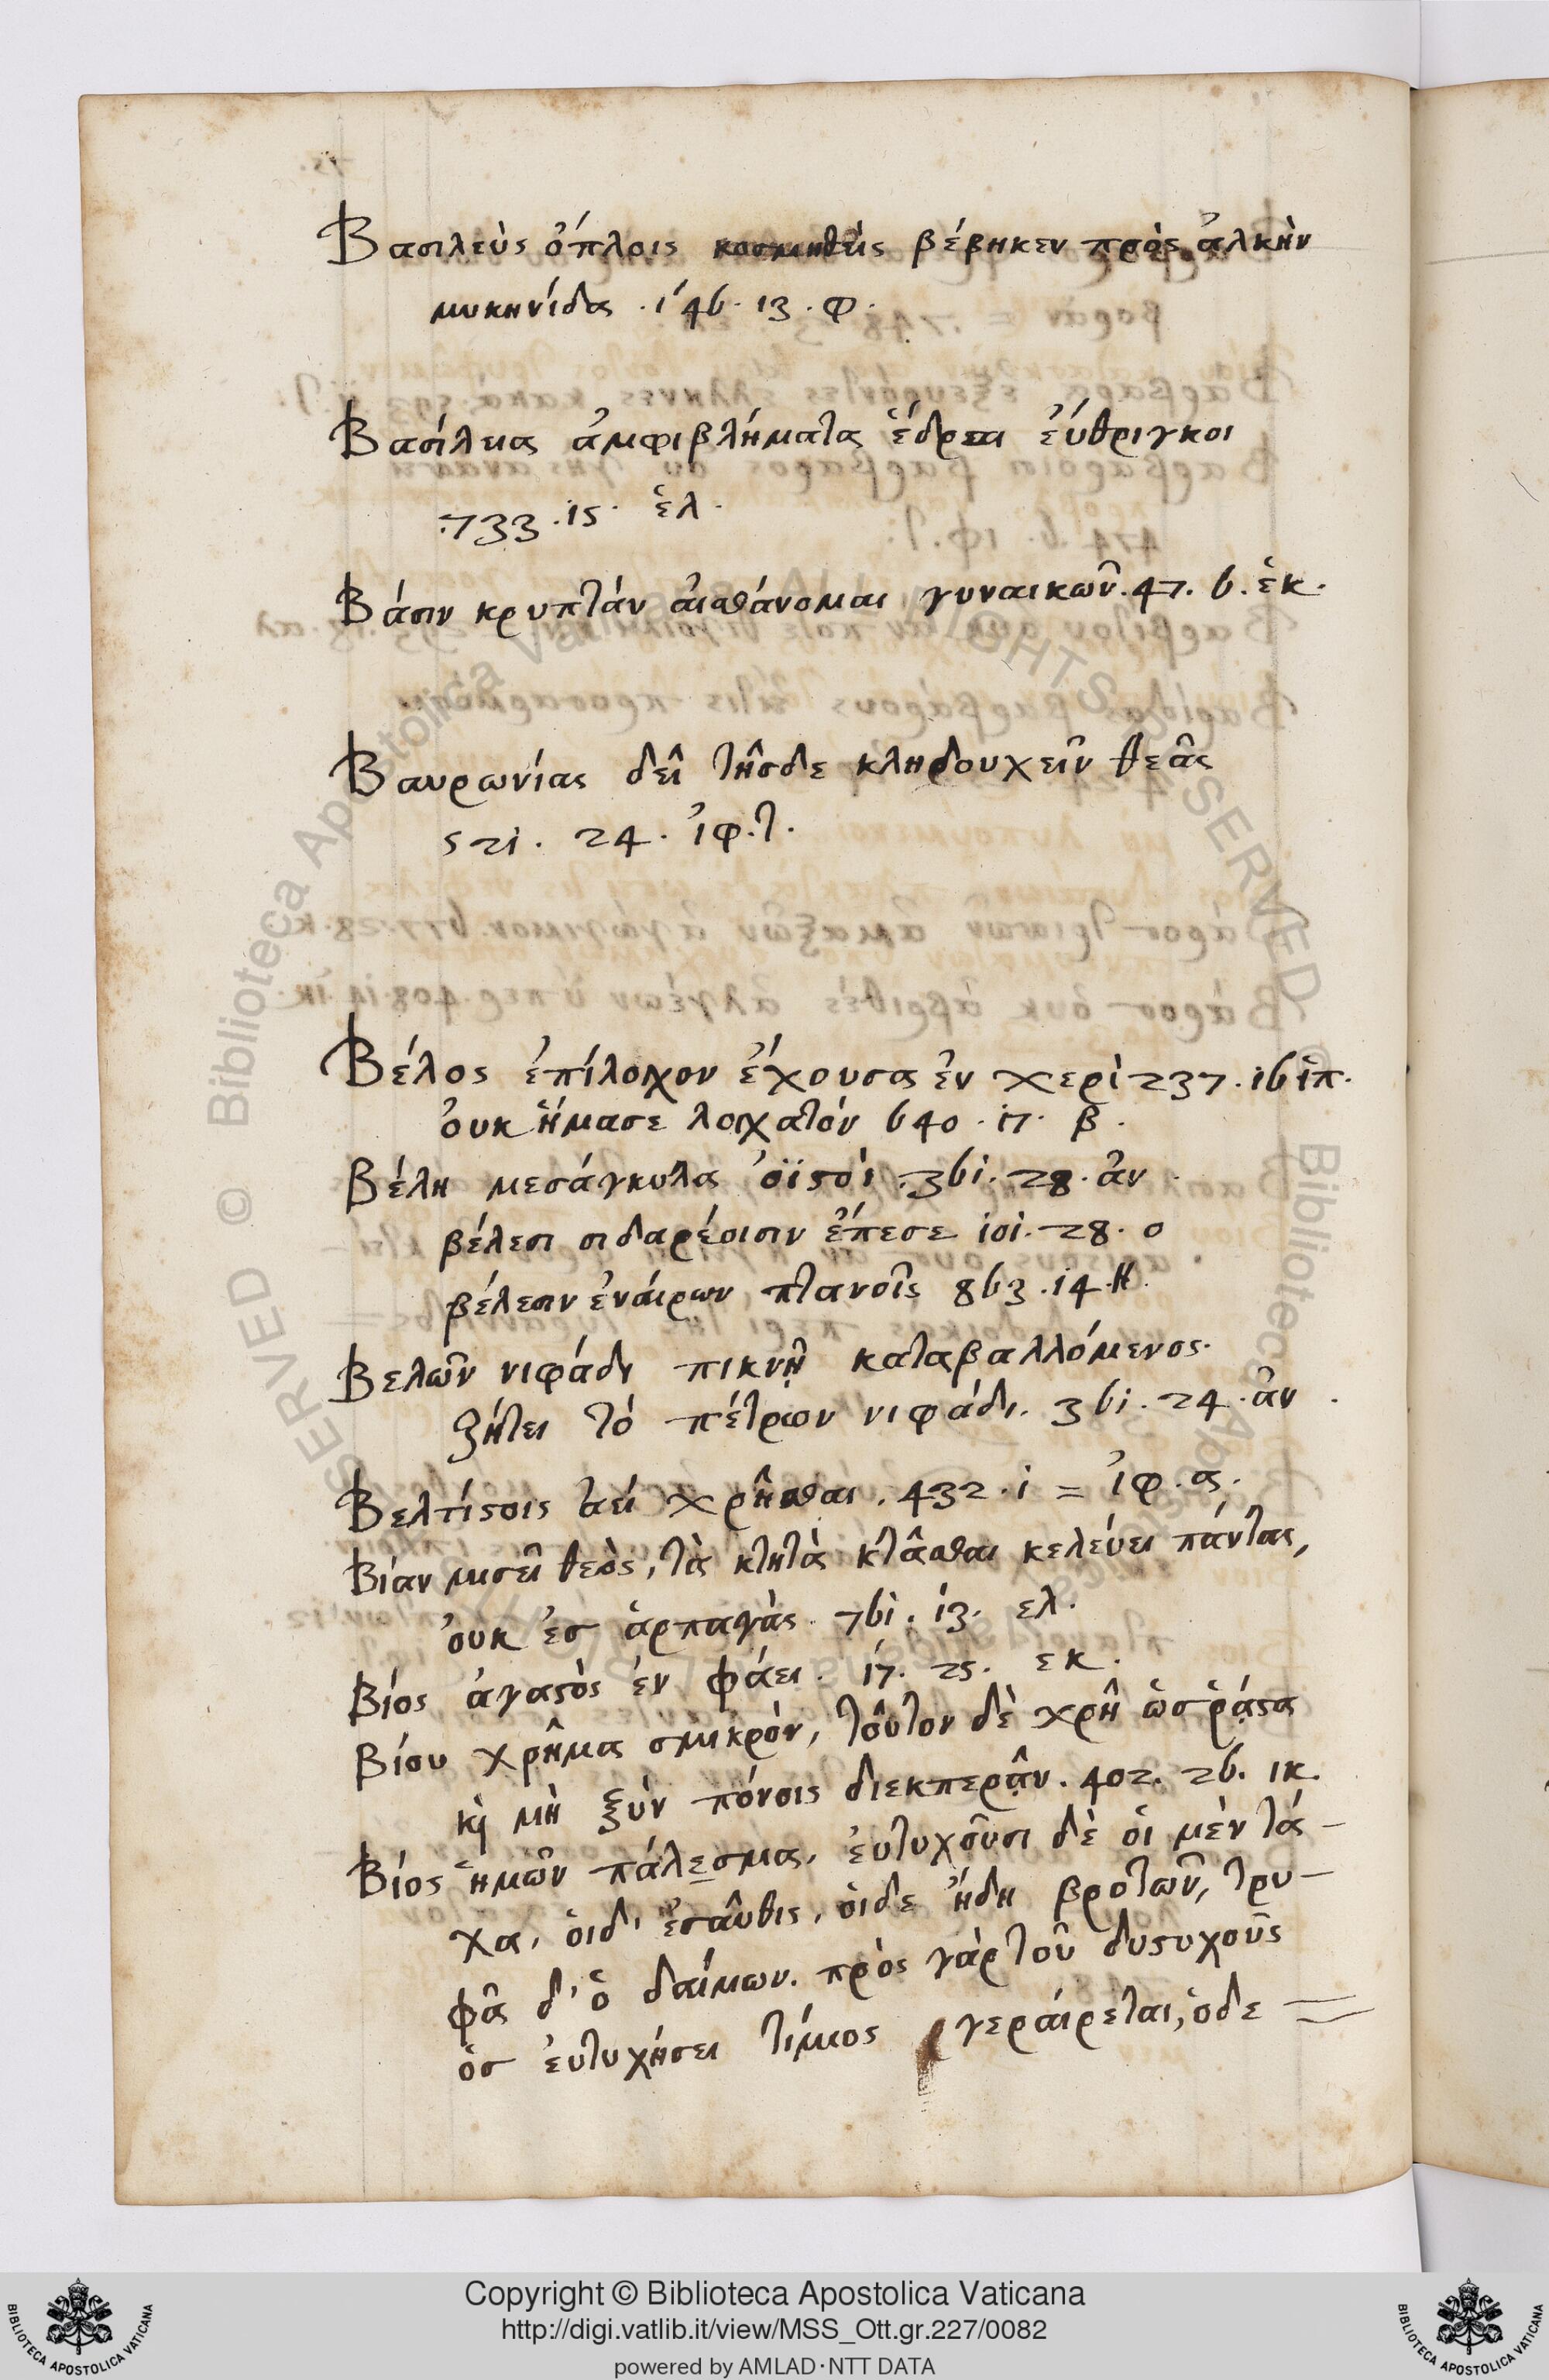 Βασιλεὺς ὅπλοις κοσμηθεὶς βέβηκεν πρὸς ἀλκὴν
μυκηνίδα . 146 . 13 . φ .
Βασίλεια ἀμφιβλήματα ἕδραι εὔθριγκοι
.733 . 15 . ἑλ .
Βάσιν κρυπτάν αἰσθάνομαι γυναικῶν . 47 . 6 . ἑκ .
Βαυρωνίας δεῖ τῆσδε κληδουχεῖν θεᾶς
521 . 24 . ἰφ . τ .
Βέλος ἐπίλοχον ἔχουσα ἐν χερὶ 237 . 16 ἱπ .
ὀυκ ἥμασε λοχατόν 640 . 17 . β .
Βέλη μεσάγκυλα ὀϊστὸι . 361 . 28 . ἀν .
βέλεσι σιδαρέοισιν ἔπεσε 101 . 28 . ο
βέλεσιν ἐναίρων πτανοῖς 863 . 14 . Η .
Βελῶν νιφάδι πικνῇ καταβαλλόμενος .
ζήτει τό πέτρων νιφάδι . 361 . 24 . ἀν .
Βελτίστοις ἀεί χρῆσθαι . 432 . 1 = ἰφ . α .
Βίαν μισεῖ θεὸς, τὰ κτητὰ κτᾶσθαι κελέυει πάντας,
ὀυκ ἐσ ἁρπαγὰς . 761 . 13 . ελ .
Βίος ἀγαστὸς ἐν φάει . 17 . 25 . εκ .
Βίου χρῆμα σμικρὸν, τοῦτον δὲ χρῆ ὡσ ῥᾷστα
κὶ μὴ ξὺν πόνοις διεκπερᾷν . 402 . 26 . ικ .
Βίος ἡμῶν πάλεσμα, ἐυτυχοῦσι δὲ ὁι μὲν τά-
χα, ὁιδ' ἐσαῦθις, ὁιδε ἤδη βροτῶν, τρυ-
φᾶ δ' ὁ δαίμων . πρὸς γὰρ τοῦ δυστυχοῦς
ὁσ ἐυτυχήσει τίμιος γεράιρεται, ὁδε =
Copyright © Biblioteca Apostolica Vaticana
http://digi.vatlib.it/view/MSS_Ott.gr.227/0082
powered by AMLAD·NTT DATA